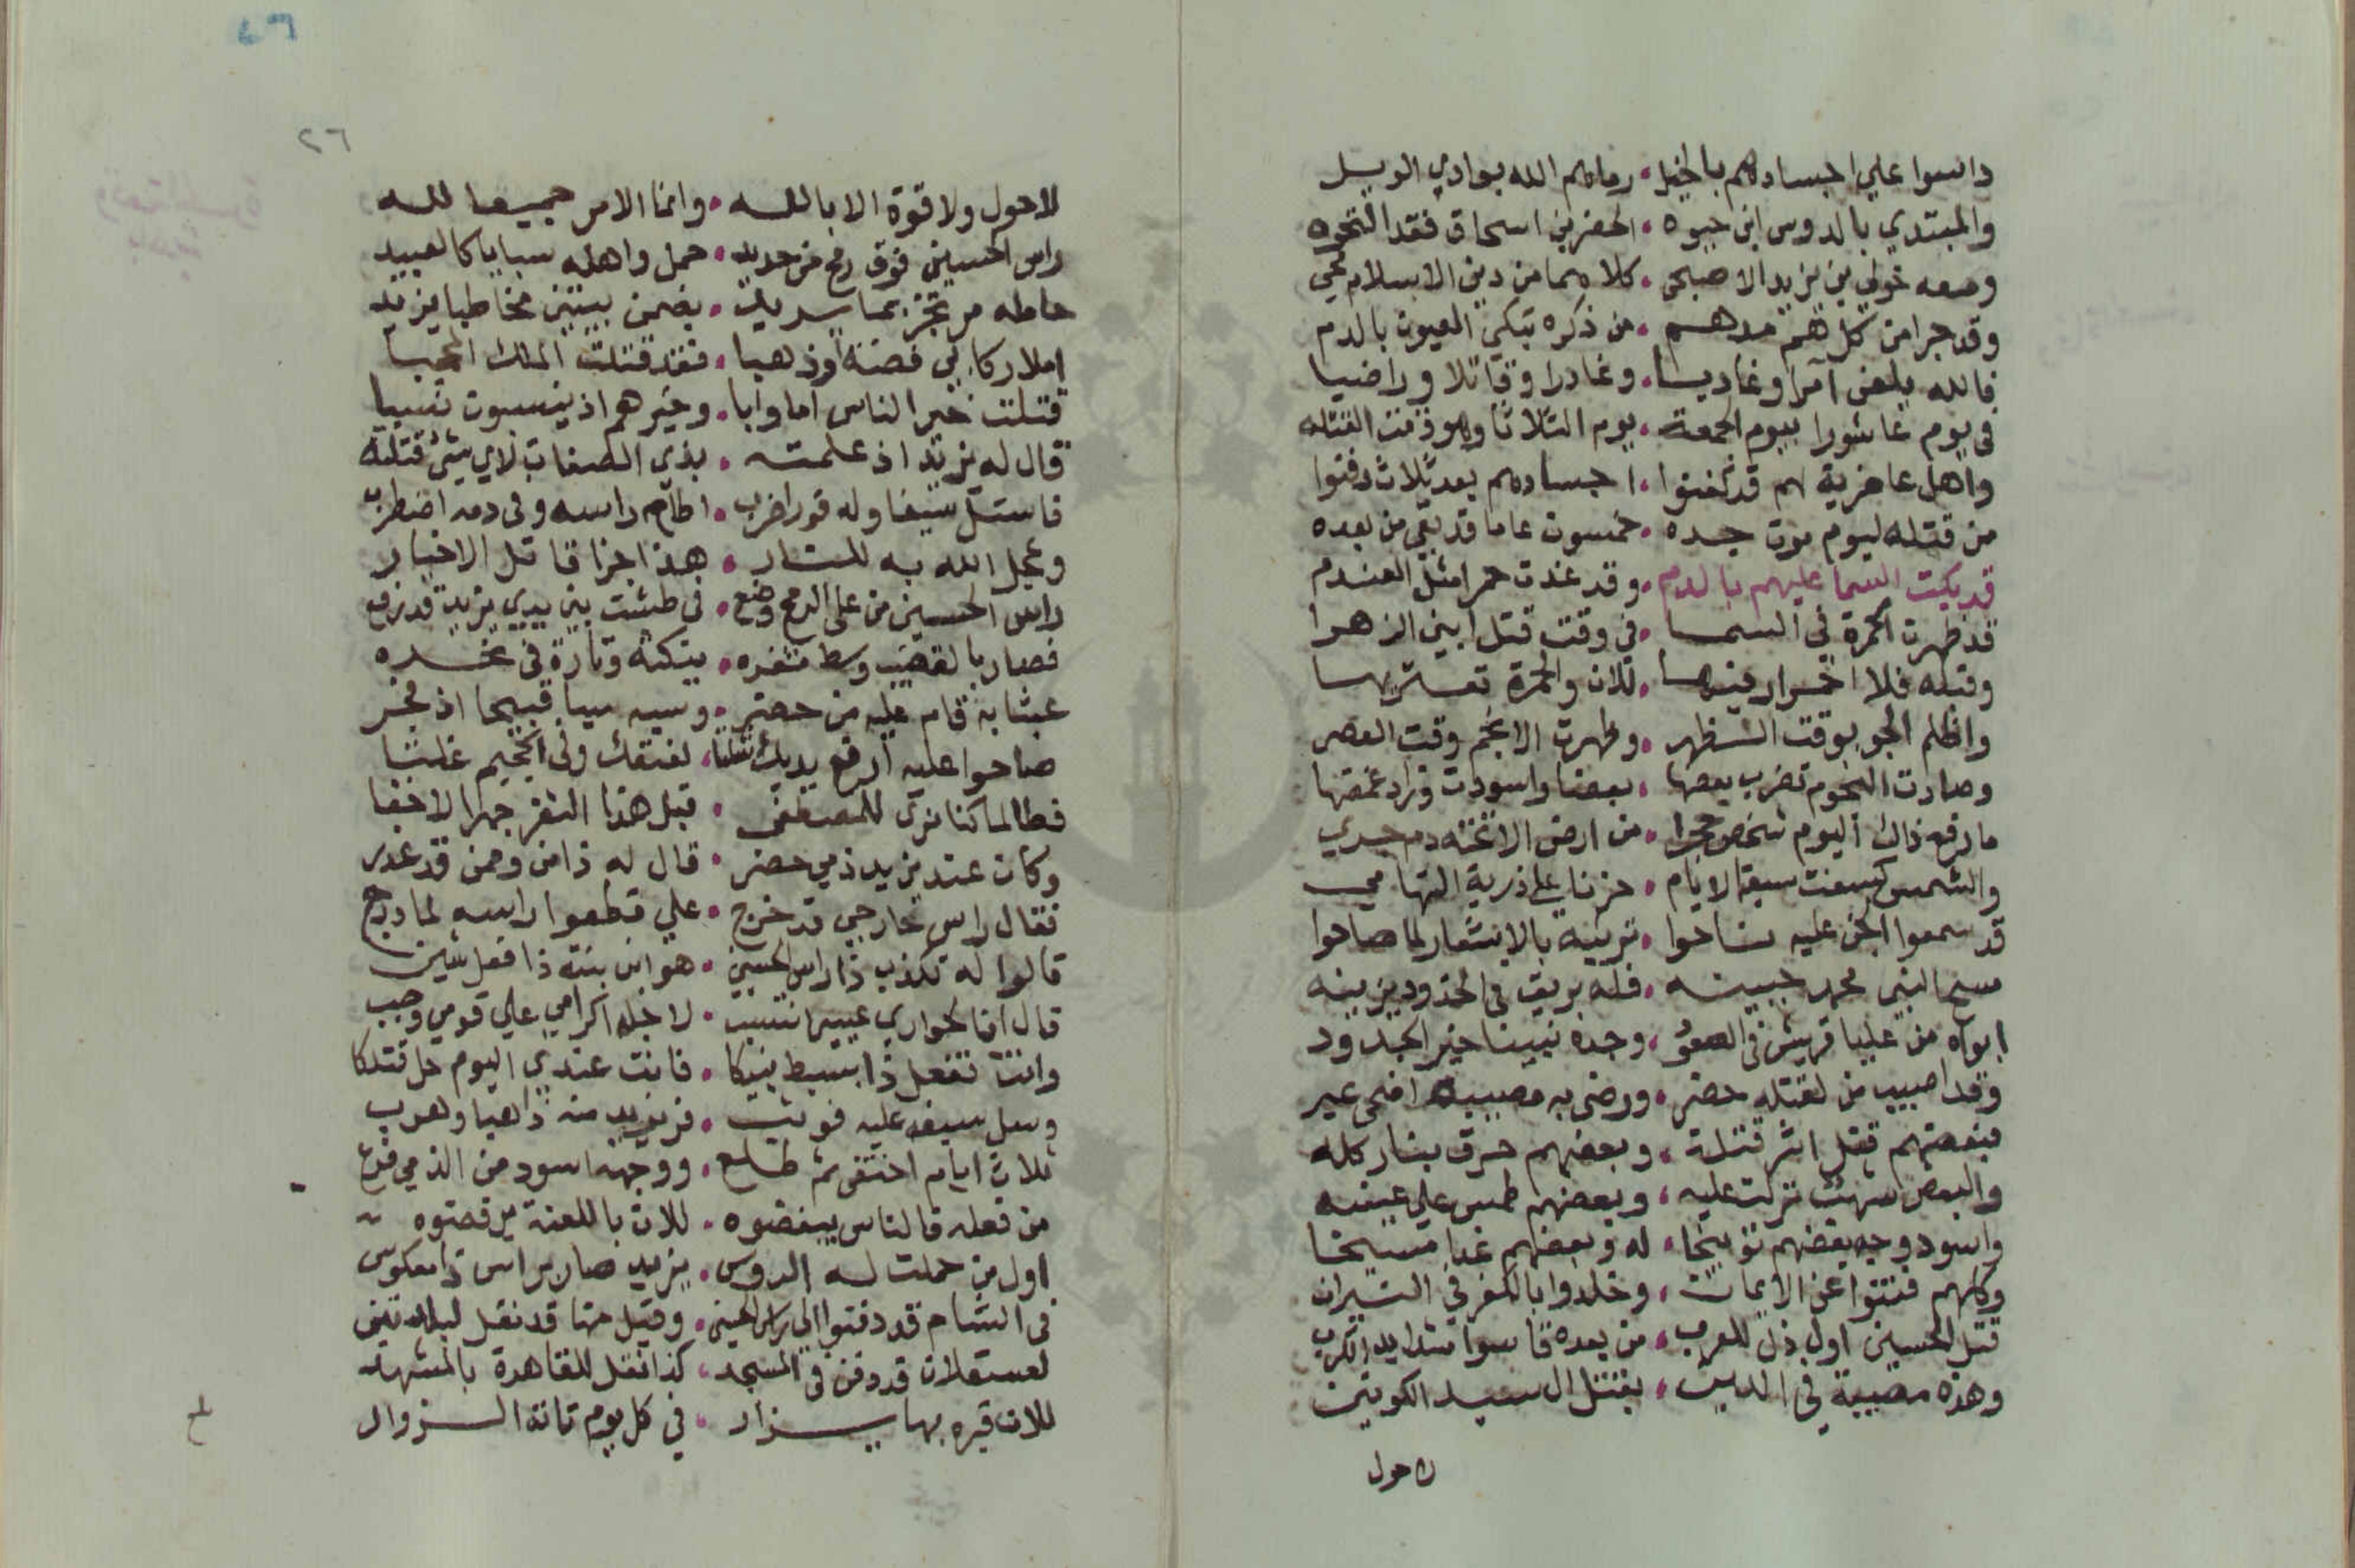 داسوا علي اجسادهم بالخيل . رماهم الله بوادي الويل
والمبتدي بالدوس ابن حيوه . الحضر بن اسحاق فقد النخوه
ومعه خولي بن يزيد الاصبحي . كلاهما من دين الاسلام محي
وقد جرا من كل هم مدهم . من ذكره تبكي العيون بالدم
فالله يلعن آمرا وغاديا . وغادرا وقاتلا وراضيا
في يوم عاشورا بيوم الجمعة . يوم الثلاثا وهو وقت القتله
واهل غاضرية لهم قد كفنوا . اجسادهم بعد ثلاث دفنوا
من قتله ليوم موت جده . خمسون عاما قد بقي من بعده
قد بكت السما عليهم بالدم . وقد غدت حمرا مثل العندم
قد ظهرت الحمرة في السما . في وقت قتل ابن الزهرا
وقتله فلا احمرار فيها . للان والحمرة تعتريها
واظلم الجو بوقت الظهر . وظهرت الانجم وقت العصر
وصارت النجوم تضرب بعضها . بعضا واسودت وزاد غمضها
ما رفع ذاك اليوم شخص حجرا . من ارض الا تحته دم جري
والشمس كسفت سبعة الايام . حزنا علي ذرية التهامي
قد سمعوا الجن عليه ناحوا . ترثيه بالاشعار لما صاحوا
مسح النبي محمد جبينه . فله بريق في الخدود يزينه
ابواه من عليا قريش في الصعود . وجده نبينا خير الجدود
وقد اصيب من لقتله حضر . ورضي به مصيبة اضحي عبر
فبعضهم قتل اشر قتلة . وبعضهم حرق بنار كله
والبعض شهب نزلت عليه . وبعضهم طمس علي عينيه
واسود وجه بعضهم توبيخا . له وبعضهم غدا مسيخا
وكلهم فتنوا عن الايمان . وخلدوا بالكفر في النيران
قتل الحسين اول ذل للعرب . من بعده قاسوا شدايد الكرب
وهذه مصيبة في الدين . بقتل ال سيد الكونين
لاحول
٢٦
لاحول ولا قوة الا بالله . وانما الامر جميعا لله
راس الحسين فوق رمح من حديد . حمل واهله سبايا كالعبيد
حامله مرتجز بما يريد . بضمن بيتين مخاطبا يزيد
املا ركابي فضة وذهبا . فقد قتلت الملك المحجبا
قتلت خير الناس اما وابا . وخيرهم اذ ينسبون نسبا
قال له يزيد اذ علمته . بذي الصفات لاي شئ قتلته
فاستل سيفا وله فورا ضرب . اطاح راسه وفي دمه اضطرب
وعجل الله به للنار . هذا جزا قاتل الاخيار
راس الحسين من علي الرمح وضع . في طشت بين يدي يزيد قد رفع
فصار بالقضيب وسط ثغره . ينكثه وتارة في نحره
عبثا به قام عليه من حضر . وسبه سبا قبيحا اذ فجر
صاحوا عليه ارفع يديك شلتا . لعنقك وفي الجحيم غلتا
فطالما كنا نري للمصطفي . قبل هذا الثغر جهرا لا خفا
وكان عند يزيد ذمي حضر . قال له ذا من وممن قد غدر
فقال راس خارجي قد خرج . علي قطعوا راسه لما درج
قالوا له تكذب ذا راس الحسين . هو ابن بنته ذا فعل شين
قال انا لحواري عيسي انتسب . لاجله اكرامي علي قومي وجب
وانت تفعل ذا بسبط نبيكا . فانت عندي اليوم حل قتلكا
وسل سيفه عليه فوثب . فر يزيد منه ذاهبا وهرب
ثلاث ايام اختفي ثم طلع . ووجهه اسود من الذمي فزع
من فعله فالناس يبغضوه . للان باللعنة يرفضوه
اول من حملت له الروس . يزيد صار براس ذا معكوس
في الشام قد دفنوا الي راس الحسين . وقيل منها قد نقل لبلدتين
لعسقلان قد دفن في المسجد . كذا نقل للقاهرة بالمشهد
للان قبره بها يزار . في كل يوم تاته الزوار